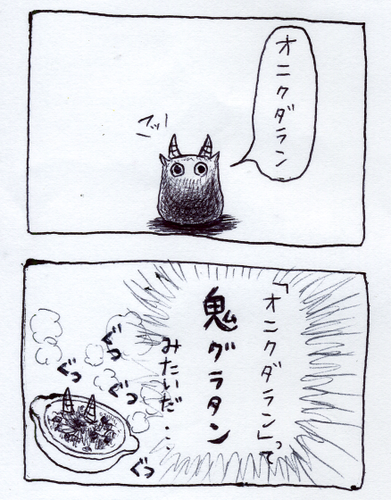 オニクダラン
フッ!
「オニクダラン」って
鬼グラタン
みたいだ・・
ぐっ
ぐっ
ぐっ
ぐっ